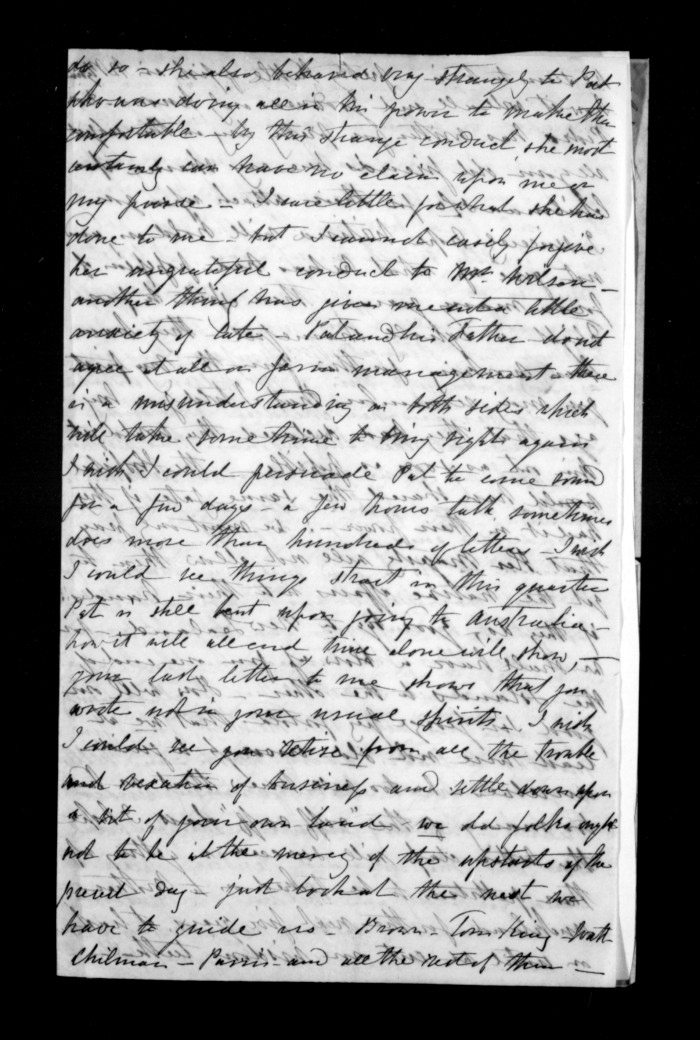 do so - she also behaved very strangely to Pat
who was doing all in his power to make them
comfortable - by this strange conduct she most
certainly can have no claim upon me or
my purse - I care little for what she has
done to me - but I cannot easily forgive
her ungrateful conduct to Mrs. Wilson -
another thing has given me not a little
anxiety of late - Pat and his Father dont
agree at all on farm management - there
is a misunderstanding on both sides which
will take some time to bring right again
I wish I could persuade Pat to come round
for a few days - a few hours talk sometimes
does more than hundreds of letters - I wish
I could see things straet in this quarter
Pat is still bent upon going to Australia -
how it will all end time alone will show, -
your last letter to me shows that you
wrote not in your usual spirits. I wish
I could see you retire from all the trouble
and vexation of business and settle down upon
a bit of your own land - we old folks ought
not to be at the mercy of the upstarts of the
present day - just look at the nest we
have to guide us - Brown - Tom King
Chilman - Parris and all the rest of them -